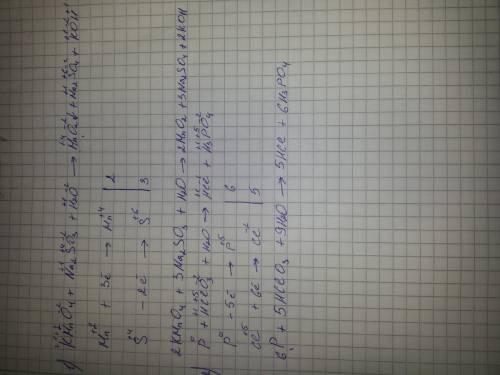 1) KMnO₄ + Na₂SO₃ + H₂O → MnO₂↓ + Na₂SO₄ + KOH
Mn⁺⁷ + 3ē → Mn⁺⁴ | 2
S⁺⁴ - 2ē → S⁺⁶ | 3
2KMnO₄ + 3Na₂SO₃ + H₂O → 2MnO₂ + 3Na₂SO₄ + 2KOH
P⁰ + HClO₃ + H₂O → HCl + H₃PO₄
P⁰ - 5ē → P⁺⁵ | 6
Cl⁺⁵ + 6ē → Cl⁻ | 5
6P + 5HClO₃ + 9H₂O → 5HCl + 6H₃PO₄